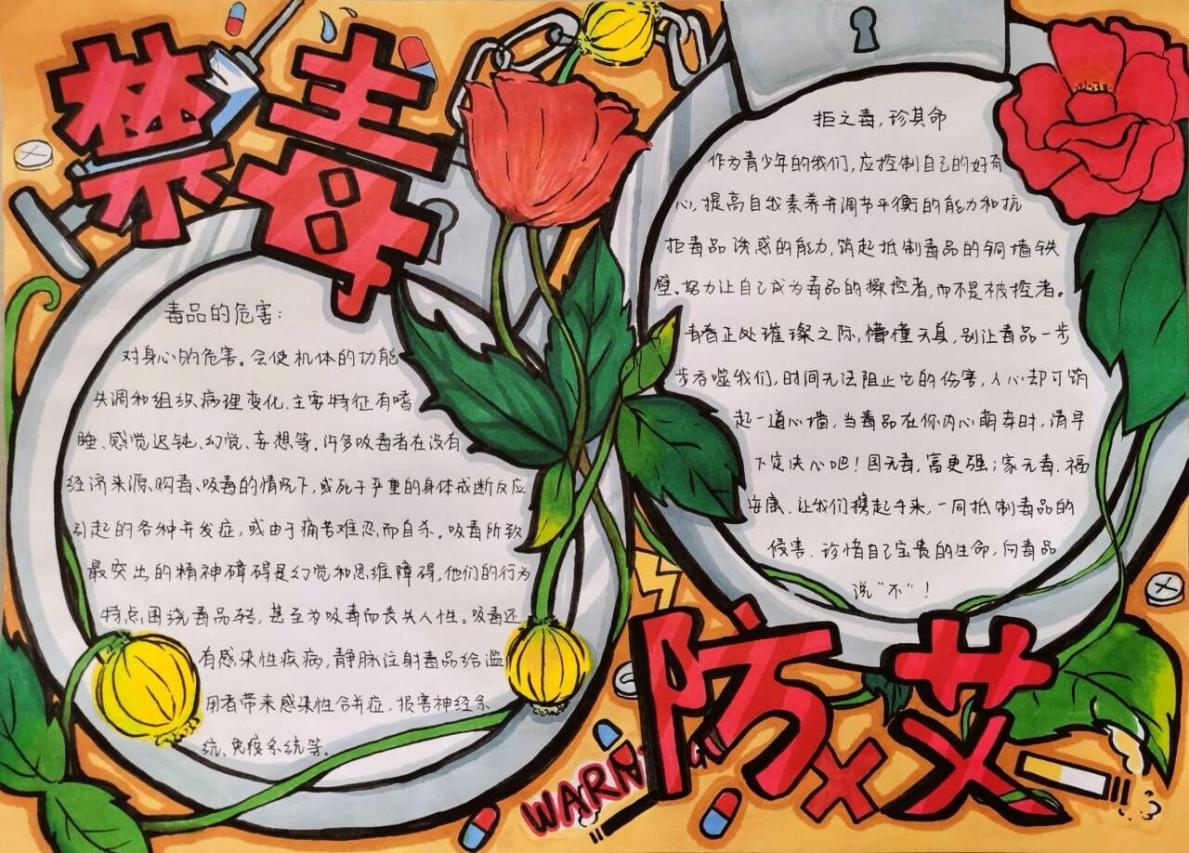 禁毒
毒品的危害:
对身心的危害。会使机体的功能
失调和组织病理变化,主要特征有嗜
睡、感觉迟钝、幻觉、妄想等。许多吸毒者在没有
经济来源、购毒、吸毒的情况下,或死于严重的身体戒断反应
引起的各种并发症,或由于痛苦难忍而自杀。吸毒所致
最突出的精神障碍是幻觉和思维障碍,他们的行为
特点围绕毒品转,甚至为吸毒而丧失人性。吸毒还
有感染性疾病,静脉注射毒品给滥
用者带来感染性合并症,损害神经系
统、免疫系统等。
拒之毒,珍其命
作为青少年的我们,应控制自己的好奇
心,提高自我素养并调节平衡的能力和抗
拒毒品诱惑的能力,筑起抵制毒品的铜墙铁
壁。努力让自己成为毒品的操控者,而不是被控者。
青春正处璀璨之际,懵懂天真,别让毒品一步
步吞噬我们,时间无法阻止它的伤害,人心却可筑
起一道心墙,当毒品在你内心萌芽时,请早
下定决心吧!国无毒,富更强;家无毒,福
安康、让我们携起手来,一同抵制毒品的
侵害,珍惜自己宝贵的生命,向毒品
说“不”!
防艾
WARN